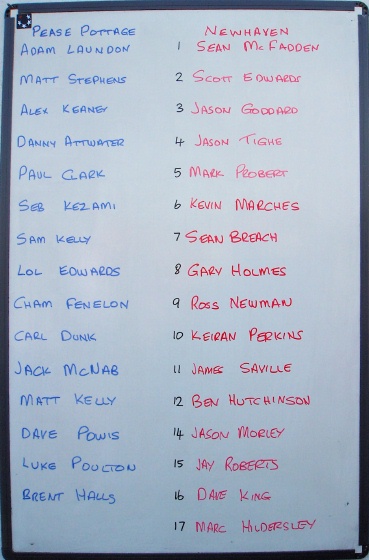 PEASE POTTAGE NEWHAVEN
ADAM LAUNDON 1 SEAN MCFADDEN
MATT STEPHENS 2 SCOTT EDWARDS
ALEX KEANEY 3 JASON GODDARD
DANNY ATTWATER 4 JASON TIGHE
PAUL CLARK 5 MARK PROBERT
SEB KEZAMI 6 KEVIN MARCHES
SAM KELLY 7 SEAN BREACH
LOL EDWARDS 8 GARY HOLMES
CHAM FENELON 9 ROSS NEWMAN
CARL DUNK 10 KEIRAN PERKINS
JACK MCNAB 11 JAMES SAVILLE
MATT KELLY 12 BEN HUTCHINSON
DAVE POWIS 14 JASON MORLEY
LUKE POULTON 15 JAY ROBERTS
BRENT HALLS 16 DAVE KING
17 MARC HILDERSLEY